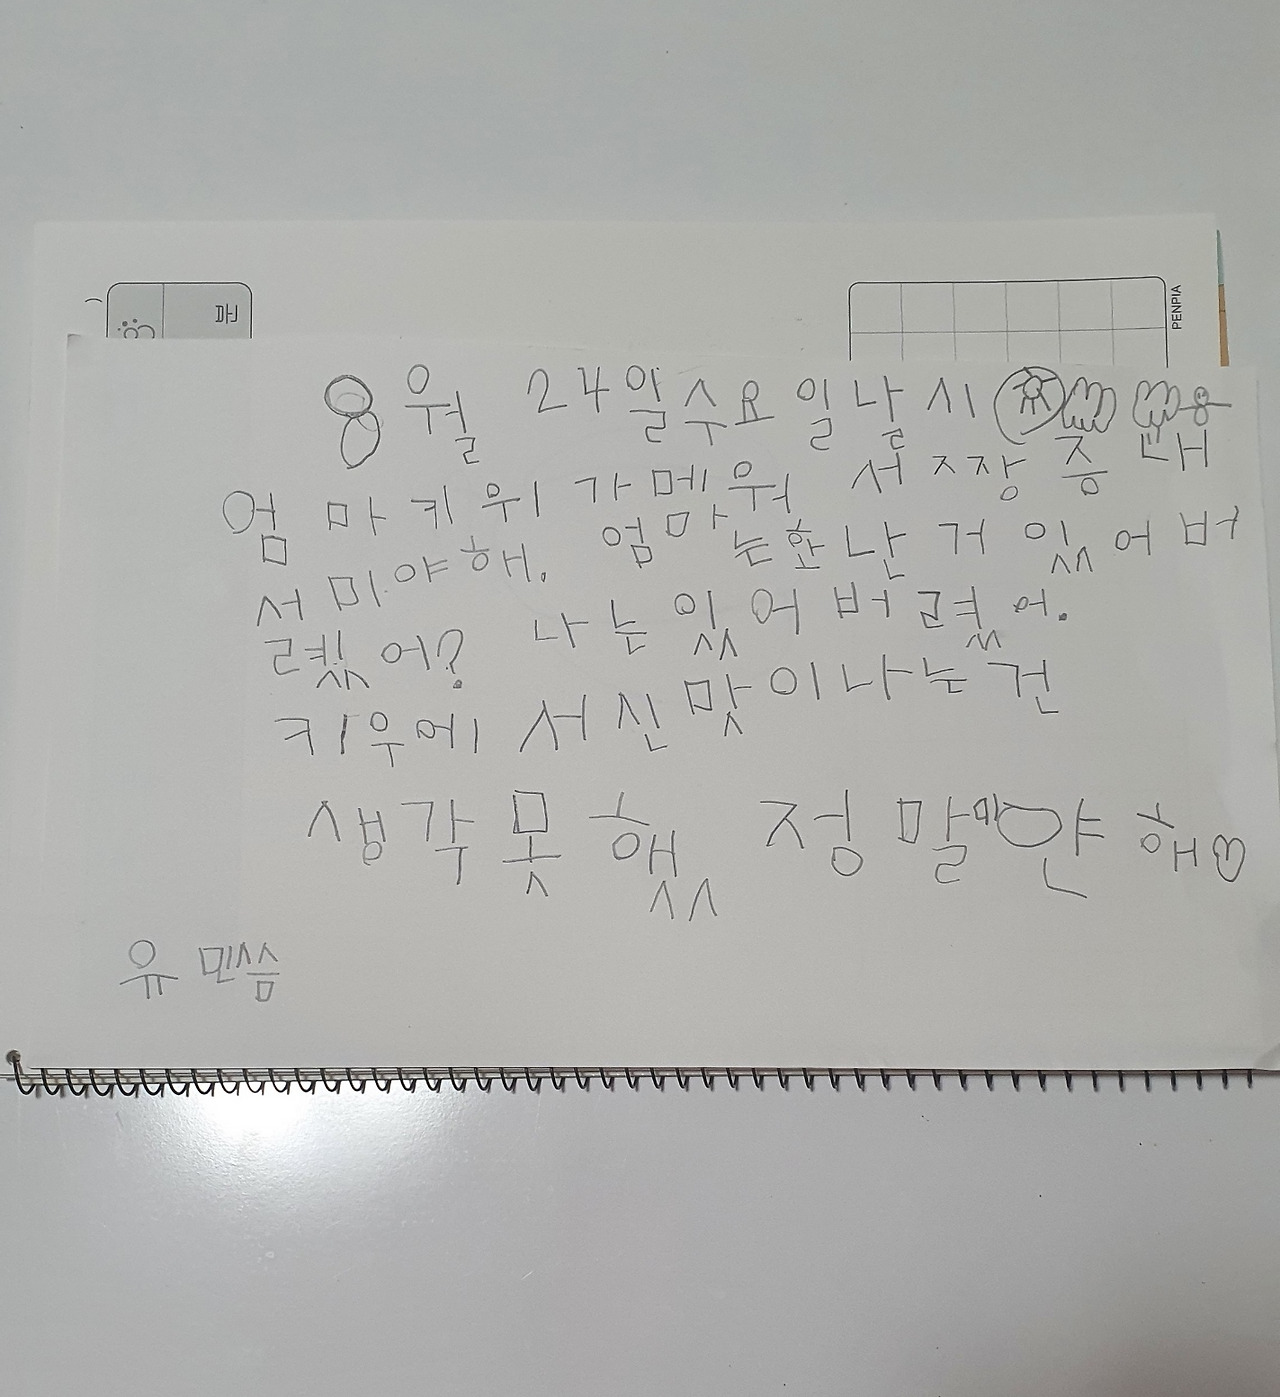 PENPIA
8월 24일 수요일 날시
엄마 키위가 메워서 짜증 내
서 미야해. 엄마는 화난 거 잆어버
렸어? 나는 잆어버렸어.
키우에서 신 맛이 나는 건
생각 못 했 정말 미안해
유민씀